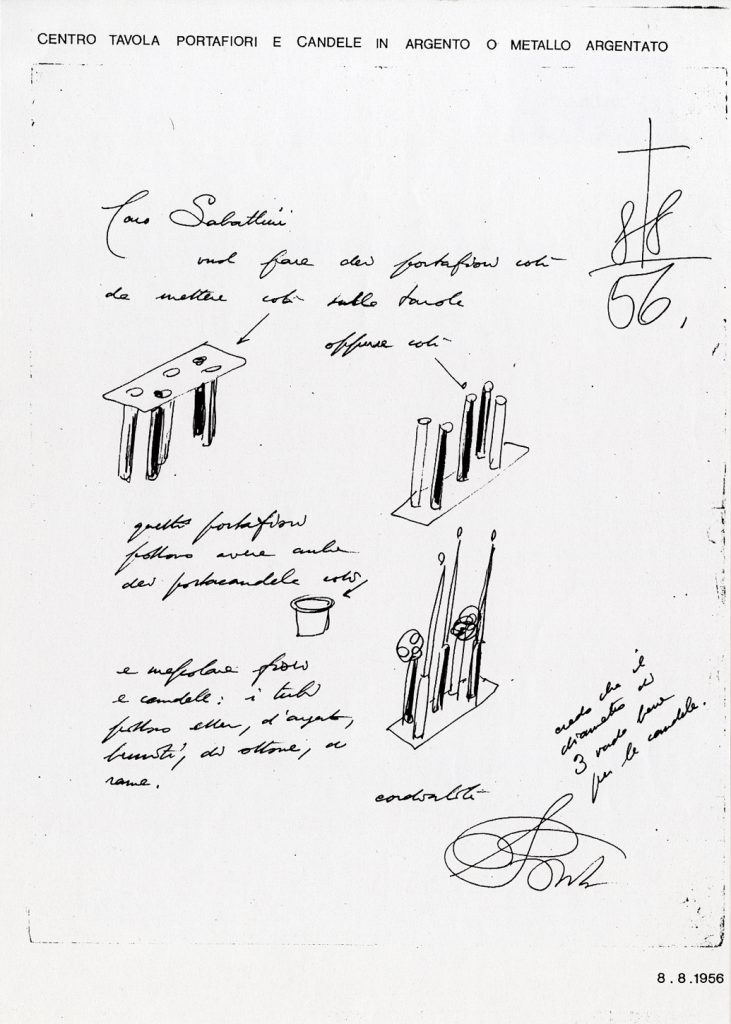 CENTRO TAVOLA PORTAFIORI E CANDELE IN ARGENTO O METALLO ARGENTATO
88
56,
Caro Sabattini
vuol fare dei portafiori così
da mettere così sulla tavola
oppure così
questi portafiori
possono avere anche
dei portacandele così
e mescolare fiori
e candele: i tubi
possono esser, d'argento,
bruniti, di ottone, di
rame.
credo che il
diametro di
3 vada bene
per le candele.
cordialità
Ponti
8.8.1956